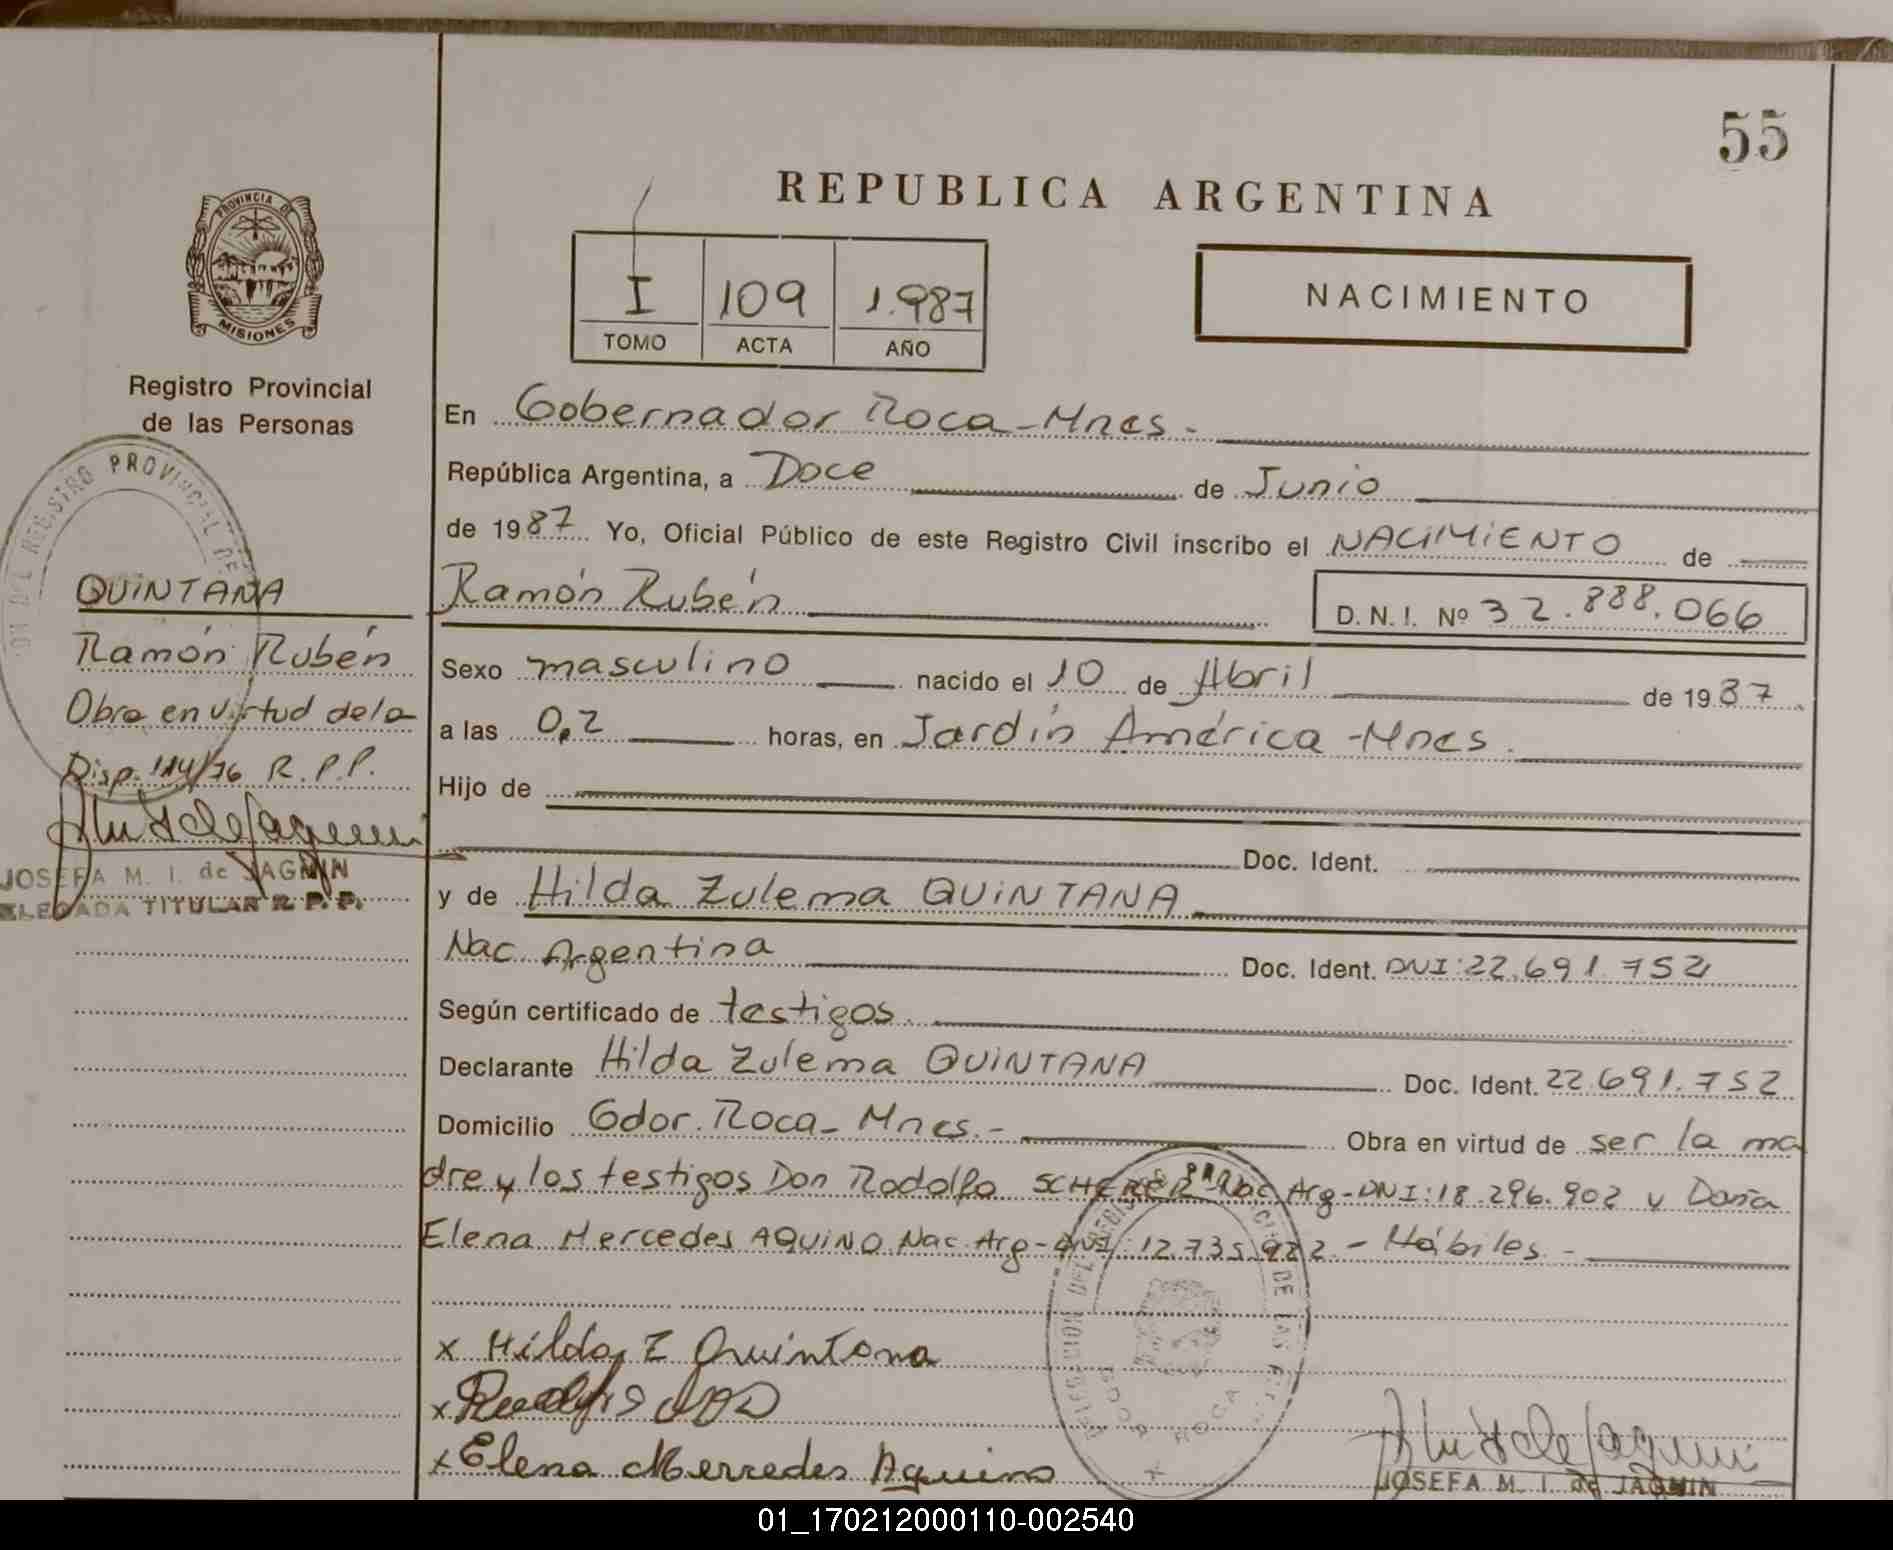 55
REPUBLICA ARGENTINA
PROVINCIA DE
MISIONES
Registro Provincial
de las Personas
I 109 1.987
TOMO ACTA AÑO
NACIMIENTO
En Gobernador Roca-Mnes.-
República Argentina, a Doce de Junio
de 1987 Yo, Oficial Público de este Registro Civil inscribo el NACIMIENTO de
Ramón Rubén D. N. I. Nº 32.888.066
Sexo masculino nacido el 10 de Abril de 1987
a las 0,2 horas, en Jardín América-Mnes.
Hijo de
Doc. Ident.
y de Hilda Zulema QUINTANA
Nac. Argentina Doc. Ident. DNI:22.691.752
Según certificado de testigos.
Declarante Hilda Zulema QUINTANA Doc. Ident. 22.691.752
Domicilio Gdor. Roca-Mnes.- Obra en virtud de ser la ma
dre y los testigos Don Rodolfo SCHERER Nac. Arg-DNI:18.296.902 y Doña
Elena Mercedes AQUINO Nac. Arg-DNI 12.735.922.- Hábiles.-
x Hilda Z Quintana
x
x Elena Merredes Aquino
JOSEFA M. I. de JAGMIN
QUINTANA
Ramón Rubén
Obra en virtud de la
Disp. 114/76 R.P.P.
JOSEFA M. I. de JAGMIN
ELEGADA TITULAR R. P. P.
REGISTRO PROVINCIAL DE
DE LAS
ROCA
01_170212000110-002540